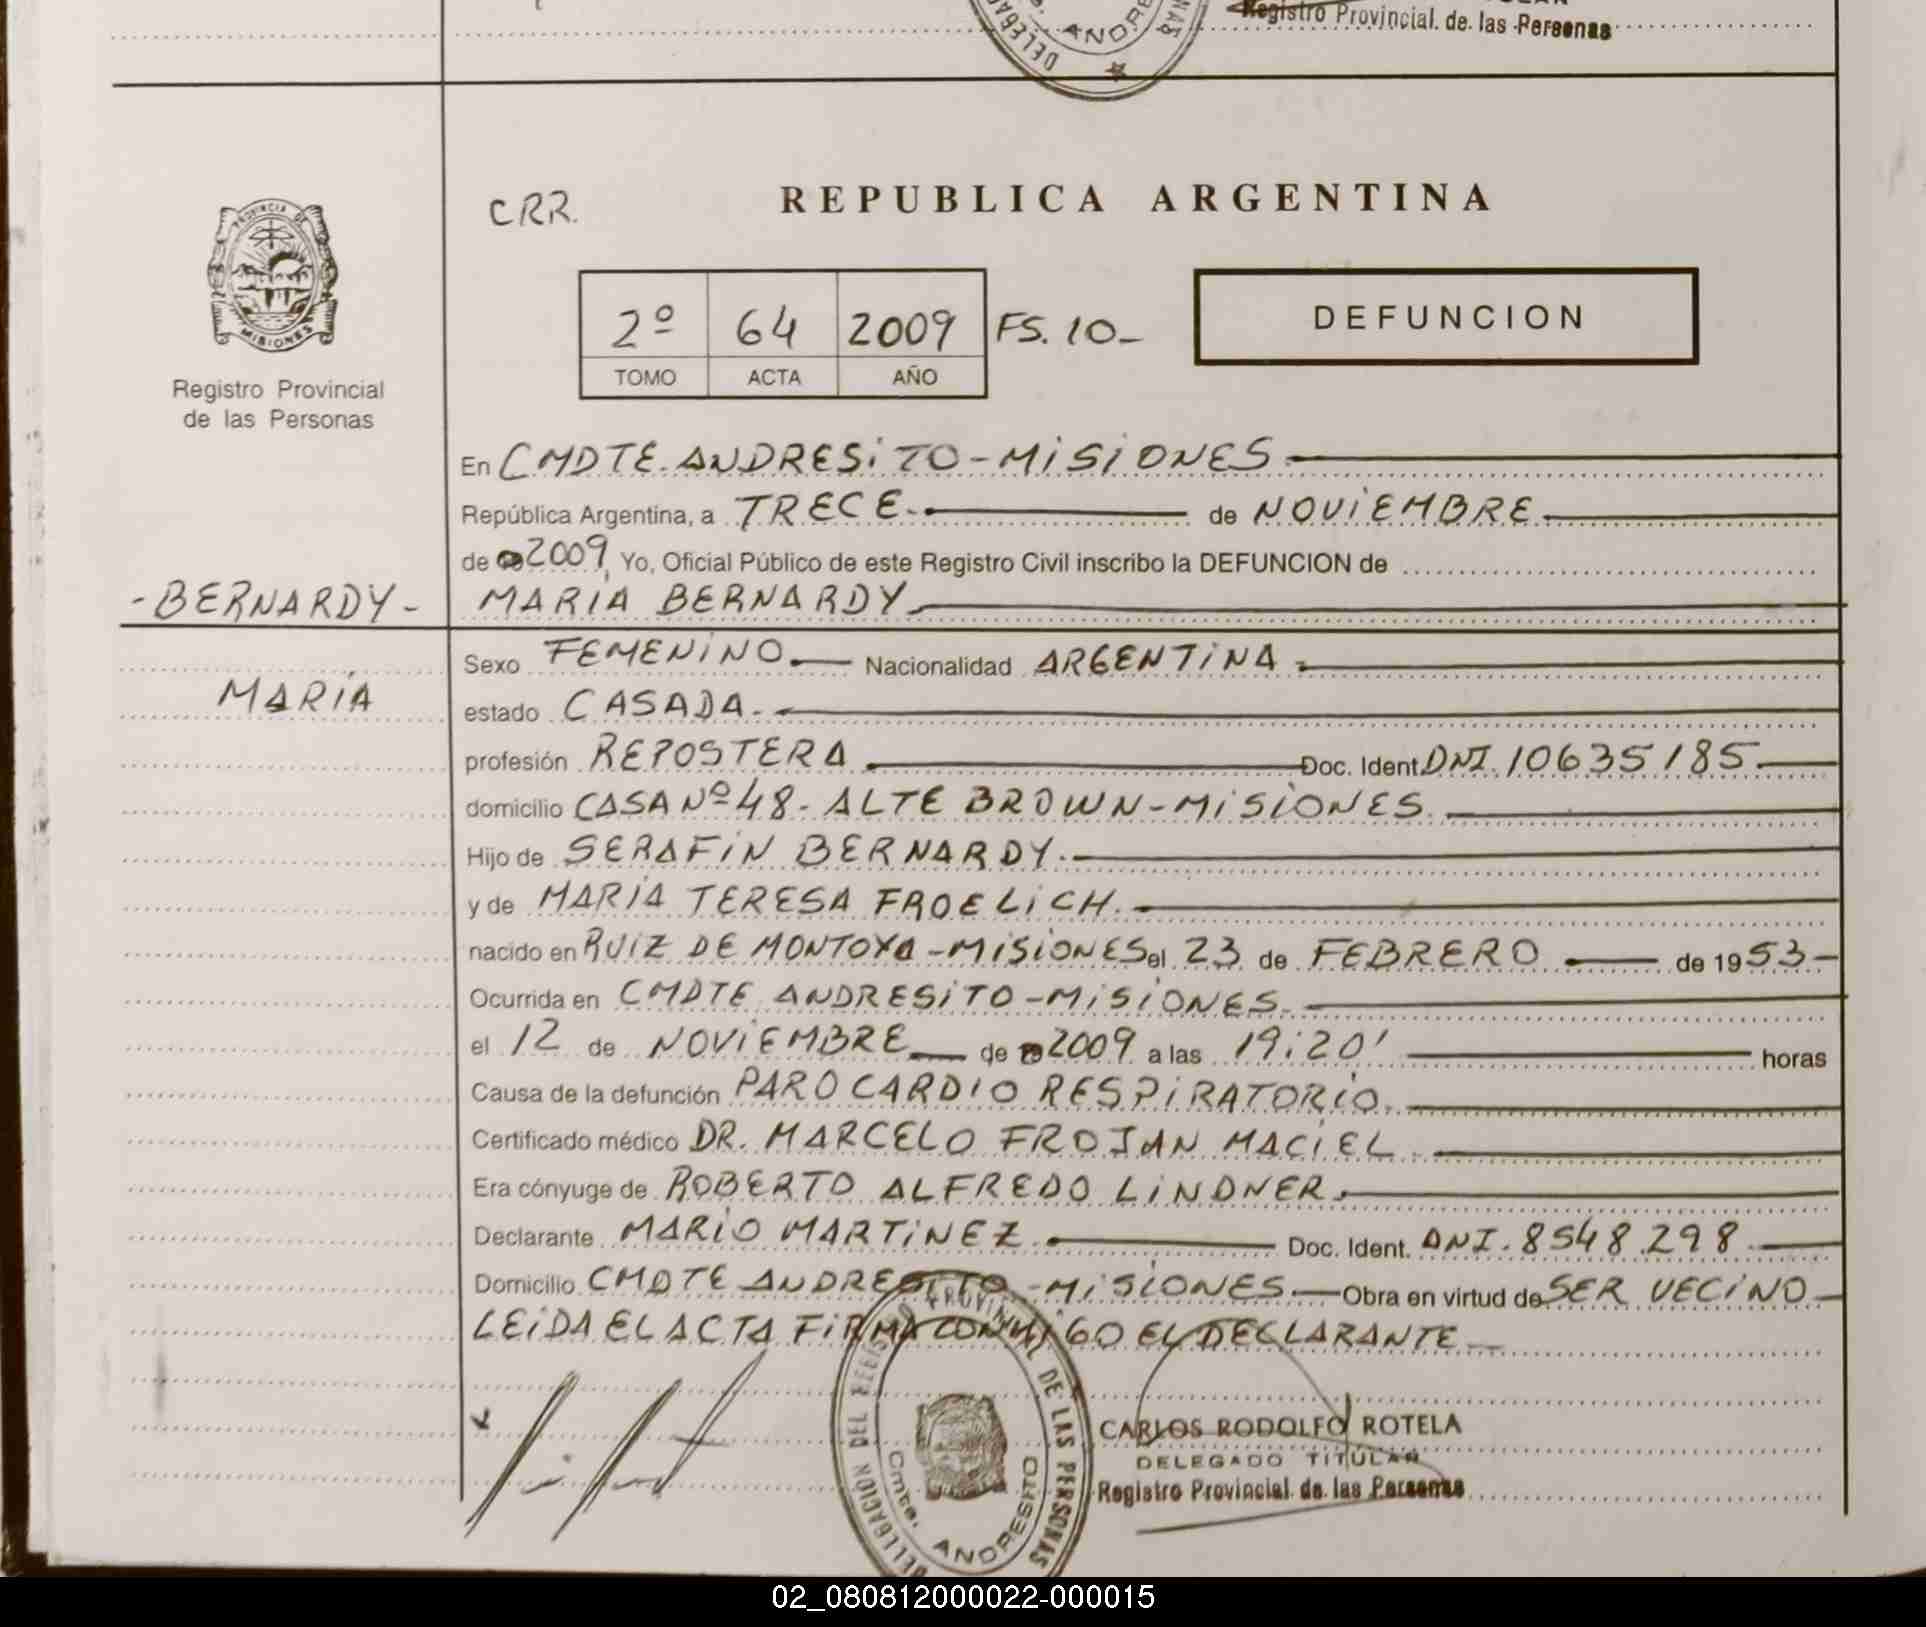 Registro Provincial de las Personas
DELEGA
ANDRE
REPUBLICA ARGENTINA
CRR.
PROVINCIA DE
MISIONES
Registro Provincial
de las Personas
2º 64 2009 FS. 10-
TOMO ACTA AÑO
DEFUNCION
En CMDTE ANDRESITO - MISIONES
República Argentina, a TRECE de NOVIEMBRE
de 2009, Yo, Oficial Público de este Registro Civil inscribo la DEFUNCION de
- BERNARDY - MARIA BERNARDY
Sexo FEMENINO Nacionalidad ARGENTINA
MARIA
estado CASADA
profesión REPOSTERA Doc. Ident. DNI. 10635185
domicilio CASA Nº 48 - ALTE BROWN - MISIONES
Hijo de SERAFIN BERNARDY
y de MARIA TERESA FROELICH
nacido en RUIZ DE MONTOYA - MISIONES el 23 de FEBRERO de 1953
Ocurrida en CMDTE ANDRESITO - MISIONES
el 12 de NOVIEMBRE de 2009 a las 19:20' horas
Causa de la defunción PARO CARDIO RESPIRATORIO
Certificado médico DR. MARCELO FROJAN MACIEL
Era cónyuge de ROBERTO ALFREDO LINDNER
Declarante MARIO MARTINEZ Doc. Ident. DNI. 8548.298
Domicilio CMDTE ANDRESITO - MISIONES Obra en virtud de SER VECINO
LEIDA EL ACTA FIRMA CONMIGO EL DECLARANTE
DELEGACION DEL REGISTRO PROVINCIAL DE LAS PERSONAS
Cmte. ANDRESITO
CARLOS RODOLFO ROTELA
DELEGADO TITULAR
Registro Provincial de las Personas
02_080812000022-000015